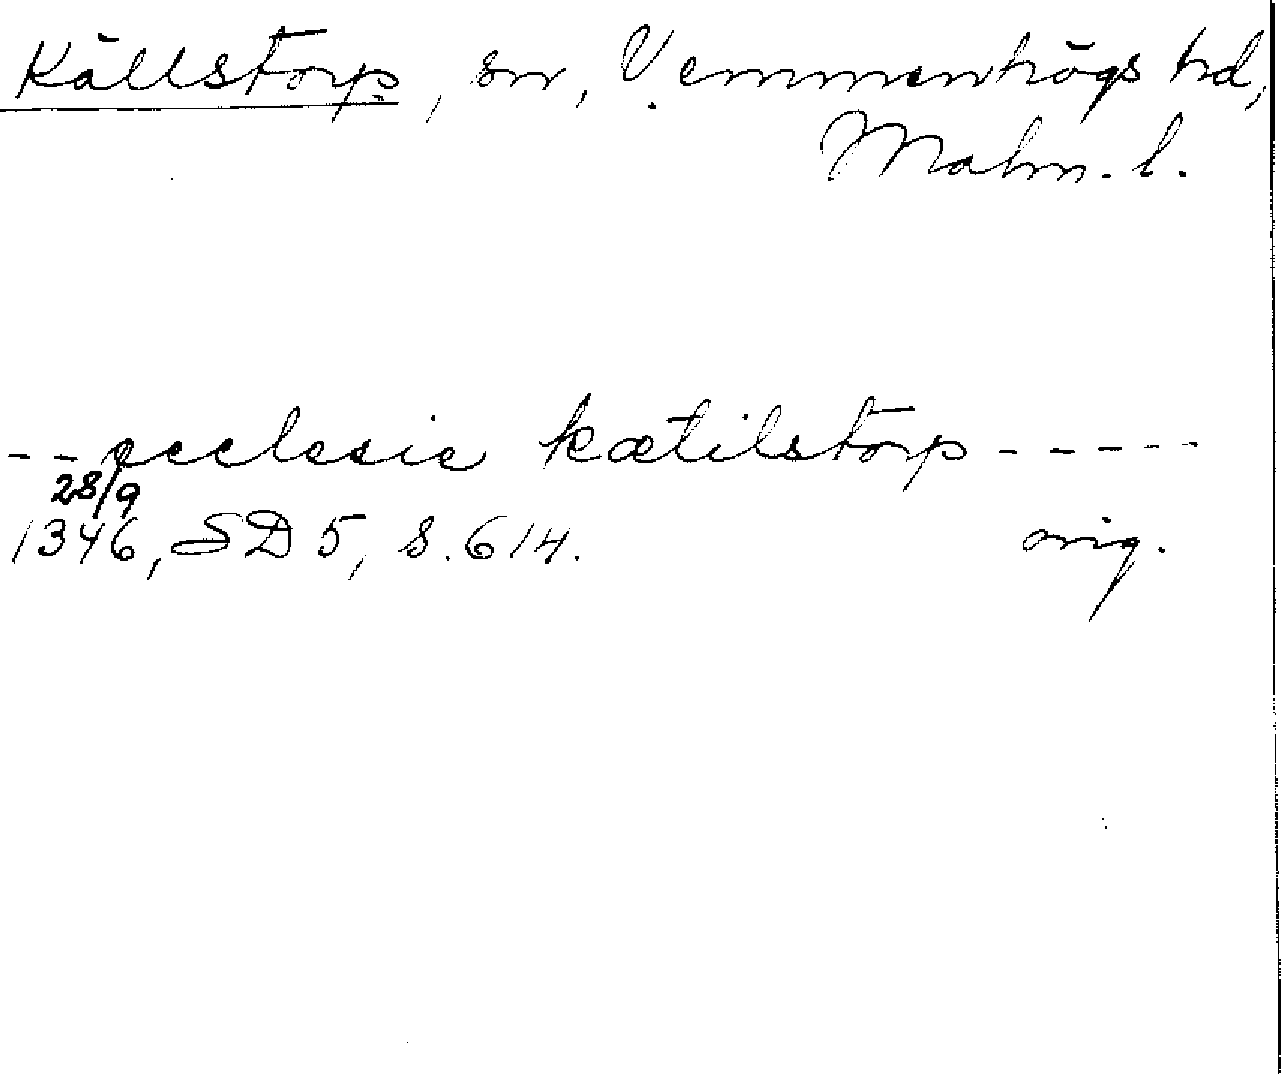 Källstorp, sn, Vemmenhögs hd,
Malm. l.
-- ecclesie kætilstorp -----
28/9
1346, SD 5, s. 614. orig.